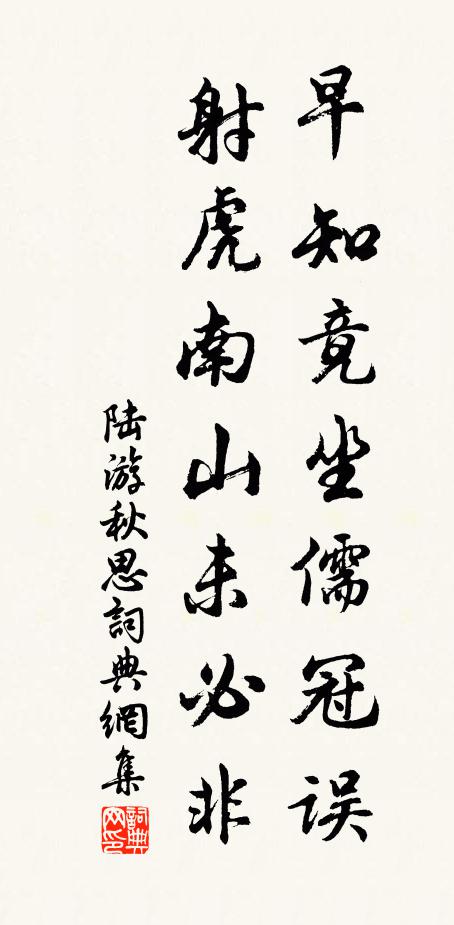 早知竟坐儒冠误
射虎南山未必非
陆游秋思詞典網集
詞典网印